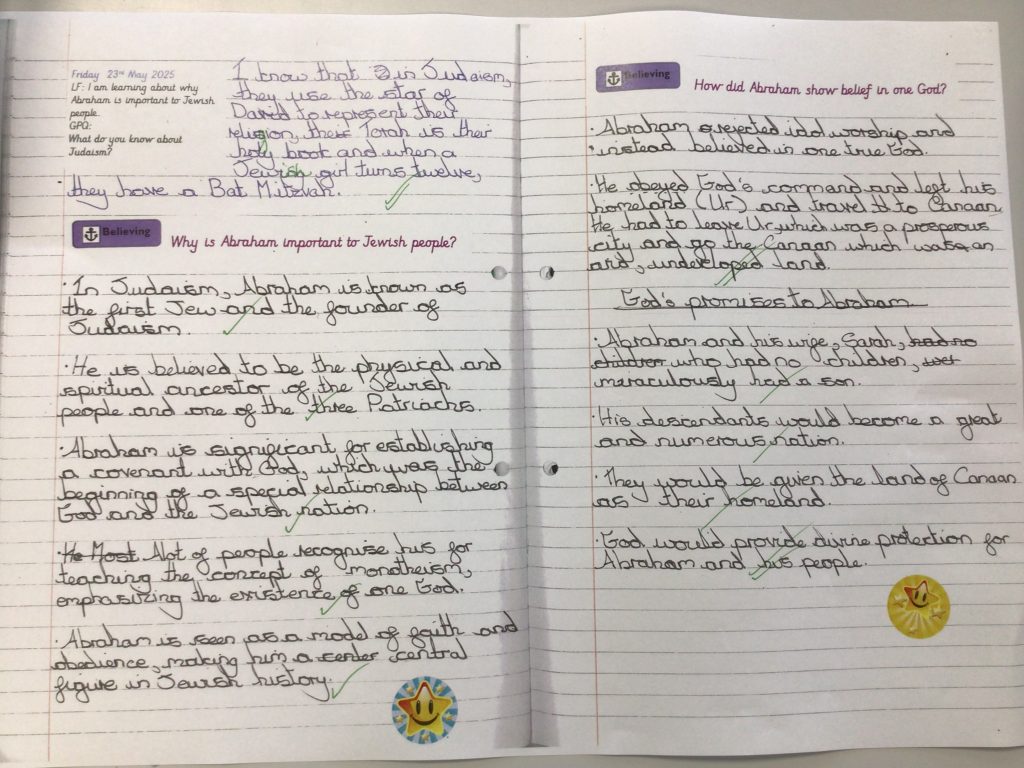 Friday 23rd May 2025
LF: I am learning about why
Abraham is important to Jewish
people.
GPQ:
What do you know about
Judaism?
I know that in Judaism,
they use the star of
David to represent their
religion, their Torah is their
holy book and when a
Jewish girl turns twelve,
they have a Bat Mitzvah.
Believing
Why is Abraham important to Jewish people?
· In Judaism, Abraham is known as
the first Jew and the founder of
Judaism.
· He is believed to be the physical and
spiritual ancestor of the Jewish
people and one of the three Patriachs.
· Abraham is significant for establishing
a covenant with God, which was the
beginning of a special relationship between
God and the Jewish nation.
· He Most Alot of people recognise his for
teaching the concept of monotheism,
emphasizing the existence of one God.
· Abraham is seen as a model of faith and
obedience, making him a center central
figure in Jewish history.
Believing
How did Abraham show belief in one God?
· Abraham rejected idol worship and
instead believed in one true God.
· He obeyed God's command and left his
homeland (Ur) and travel to Canaan.
He had to leave Ur which was a prosperous
city and go the Canaan which was an
arid, undevloped land.
God's promises to Abraham
· Abraham and his wife, Sarah, had no
children who had no children,
maraculously had a son.
· His descendants would become a great
and numerous nation.
· They would be given the land of Canaan
as their homeland.
· God would provide divine protection for
Abraham and his people.